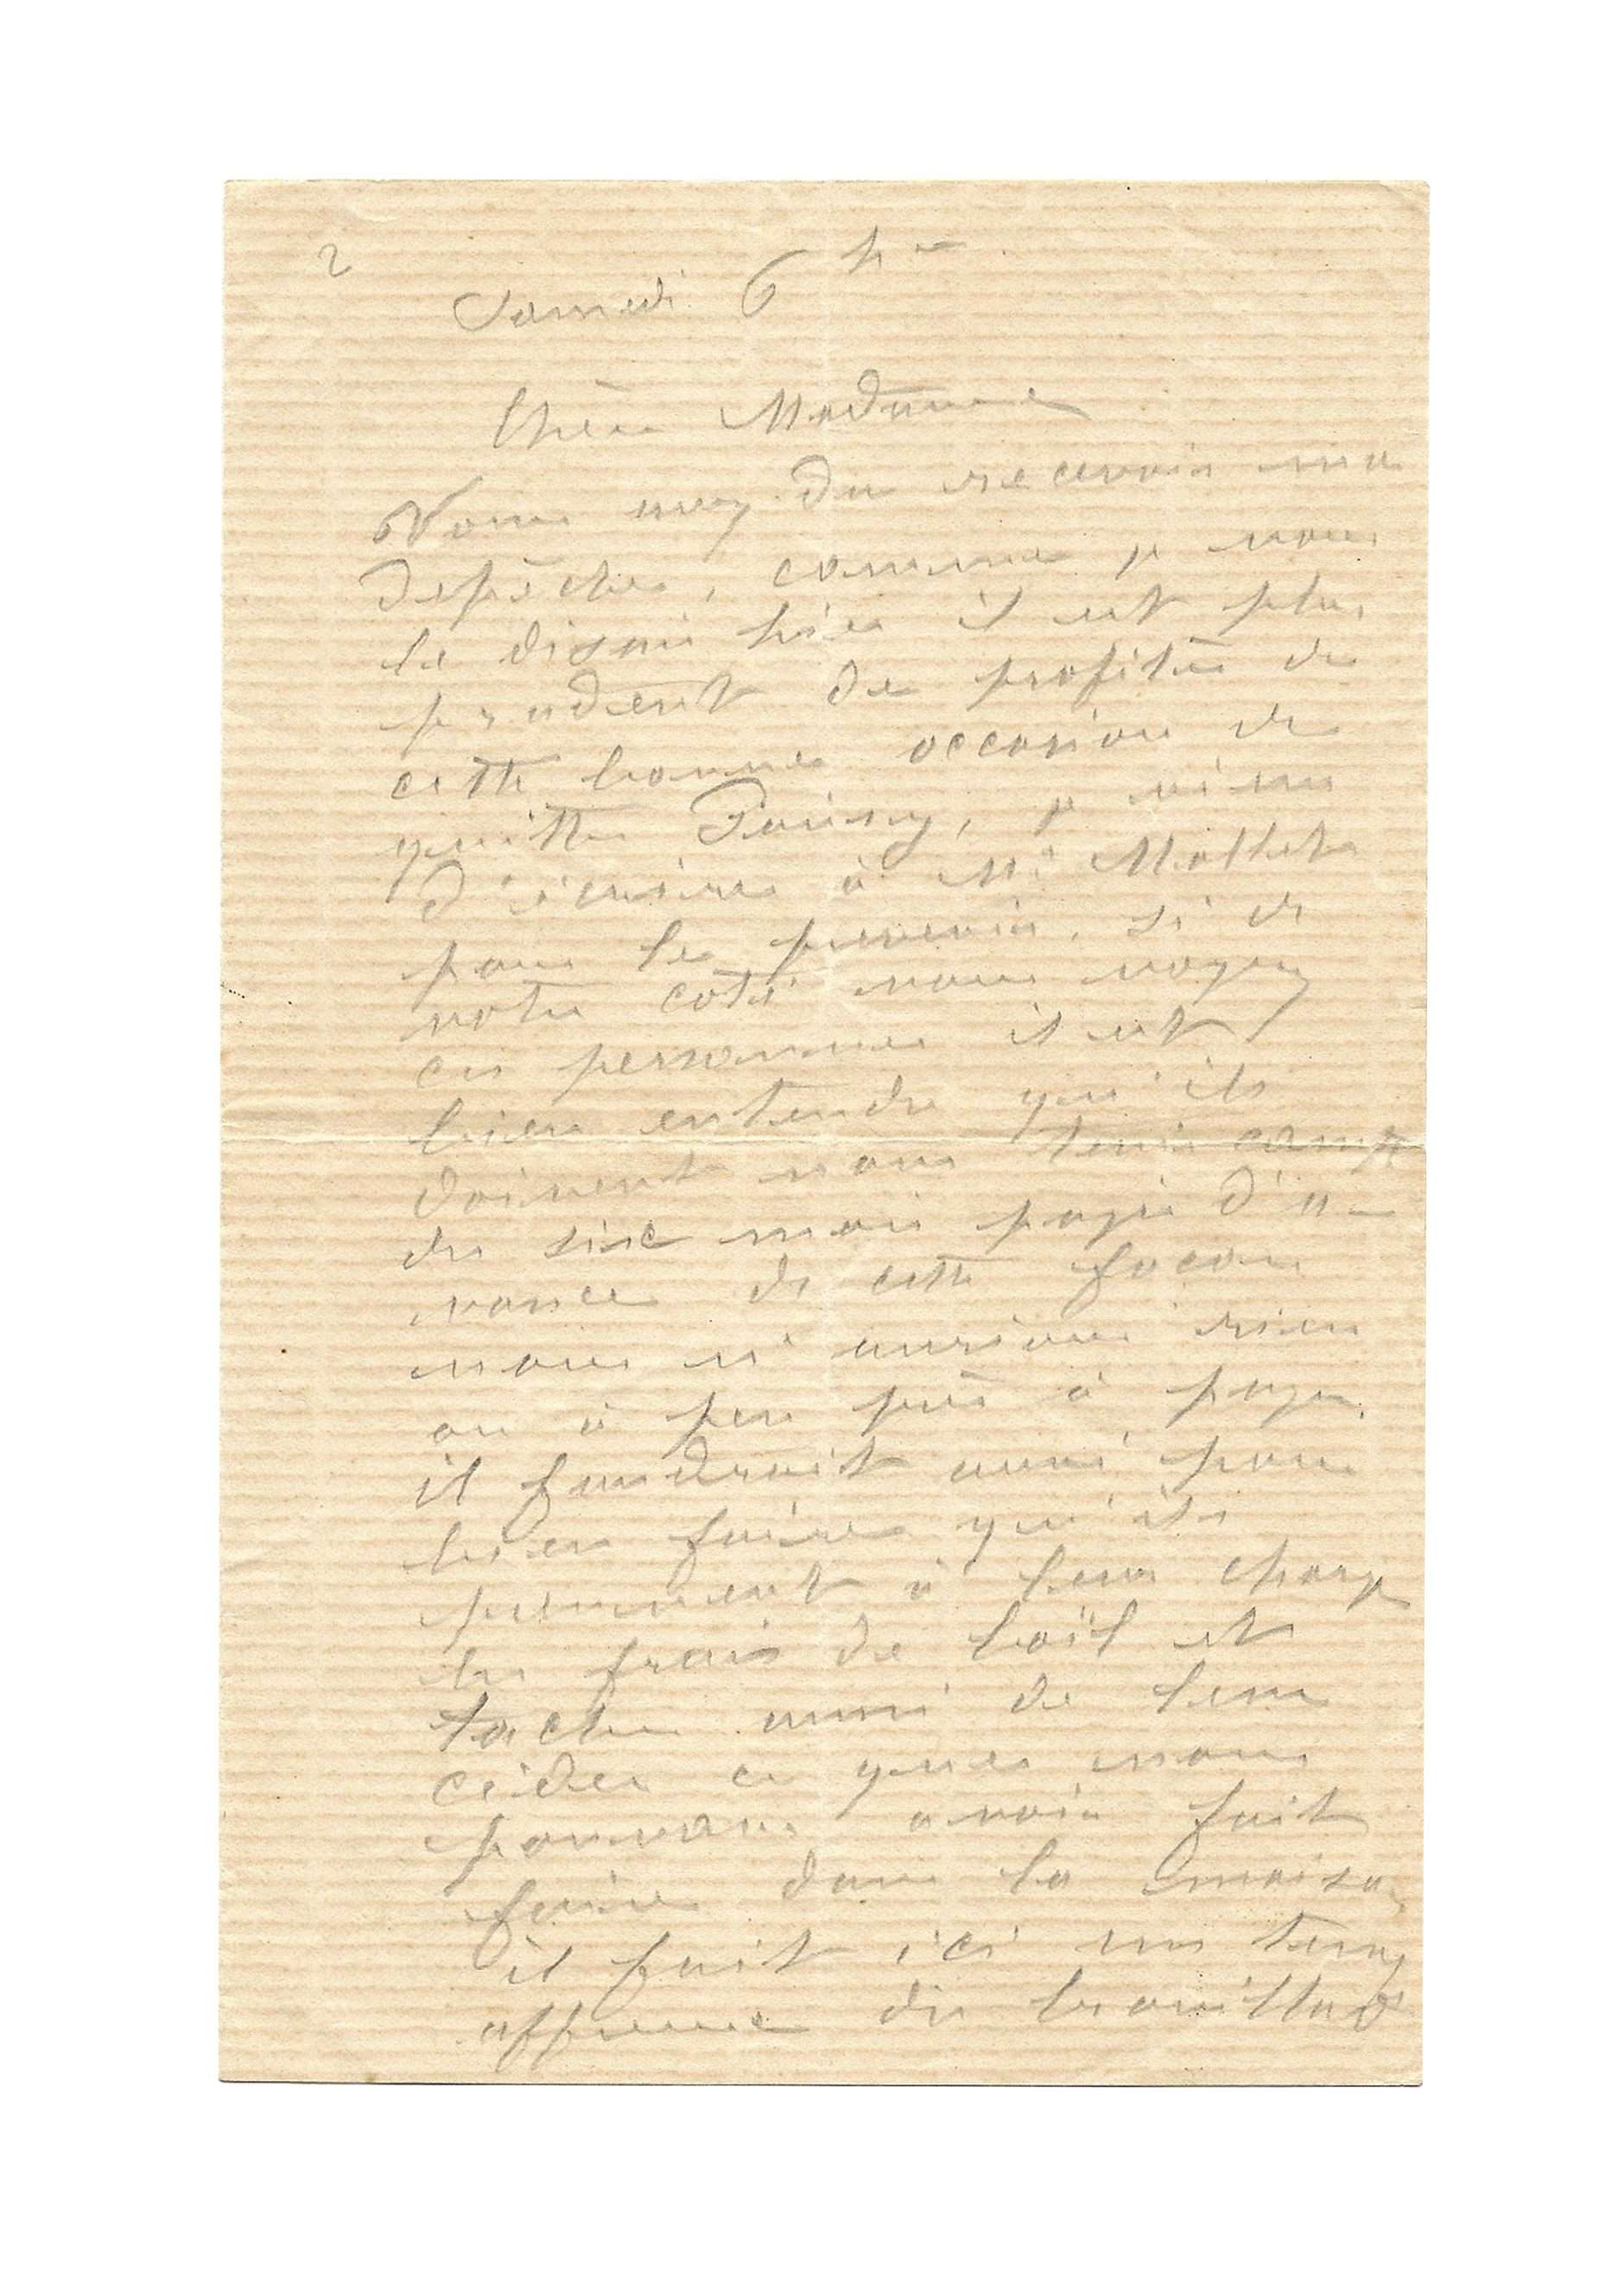 2
Samedi 6 h
Chère Madame
Vous avez du recevoir ma
depêche, comme je vous
le disais hier il est plus
prudent de profiter de
cette bonne occasion de
quitter Poissy, je viens
d'écrire à Mr
pour les prevenir, si de
votre coté vous voyez
ces personnes il est
bien entendu qu'ils
doivent nous tenir compte
du six mois payé d'a-
vance de cette façon
nous n'aurions rien
ou à peu près à payer.
il faudrait aussi pour
bien faire qu'ils
prennent à leur charge
les frais de bail et
tacher aussi de leur
céder ce que nous
pouvons avoir fait
faire dans la maison,
il fait ici un temps
affreux du brouillard